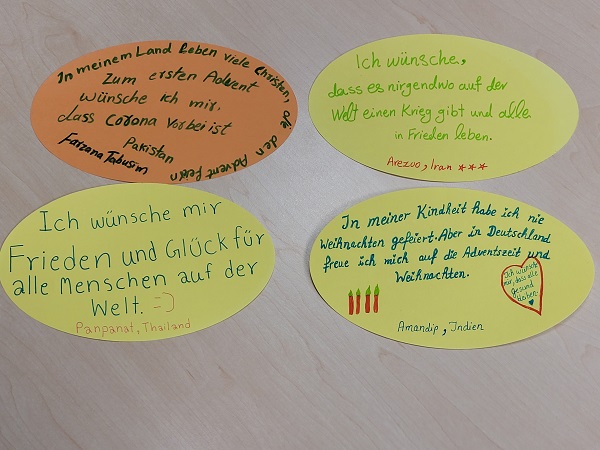 In meinem Land leben viele Christen, die den Advent feiern
Zum ersten Advent
wünsche ich mir,
dass Corona vorbei ist
Pakistan
Farzana Tabusim
Ich wünsche,
dass es nirgendwo auf der
Welt einen Krieg gibt und alle
in Frieden leben.
Arezoo, Iran ★★★
Ich wünsche mir
Frieden und Glück für
alle Menschen auf der
Welt. =)
Panpanat, Thailand
In meiner Kindheit habe ich nie
Weihnachten gefeiert. Aber in Deutschland
freue ich mich auf die Adventszeit und
Weihnachten.
Ich wünsche
mir, dass alle
gesund
bleiben.
Amandip, Indien